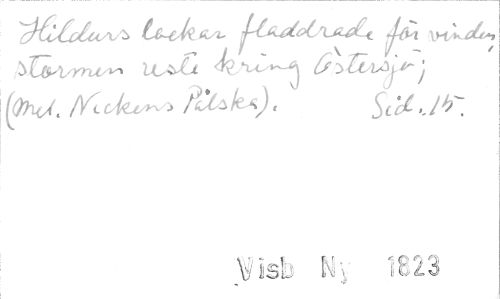 Hildurs lockar fladdrade för vinden,
stormen reste kring Östersjö;
(Mel. Neckens Polska). Sid. 15.
Visb Ny 1823